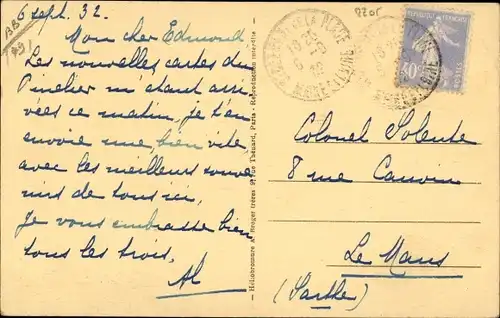 6 sept. 32.
Mon cher Edmond
Les nouvelles cartes du
Pinelier m'étant arri-
vées ce matin, je t'en
envoie une, bien vite,
avec les meilleurs souve-
nirs de tous ici,
Je vous embrasse bien
tous les trois,
Al
Héliobromure A. Breger frères 9, rue Thénard, Paris - Reproduction interdite
8205
REPUBLIQUE FRANÇAISE
40c
POSTES
MAINE ET LOIRE
Colonel Solente
8 rue Cauvin
Le Mans
(Sarthe)